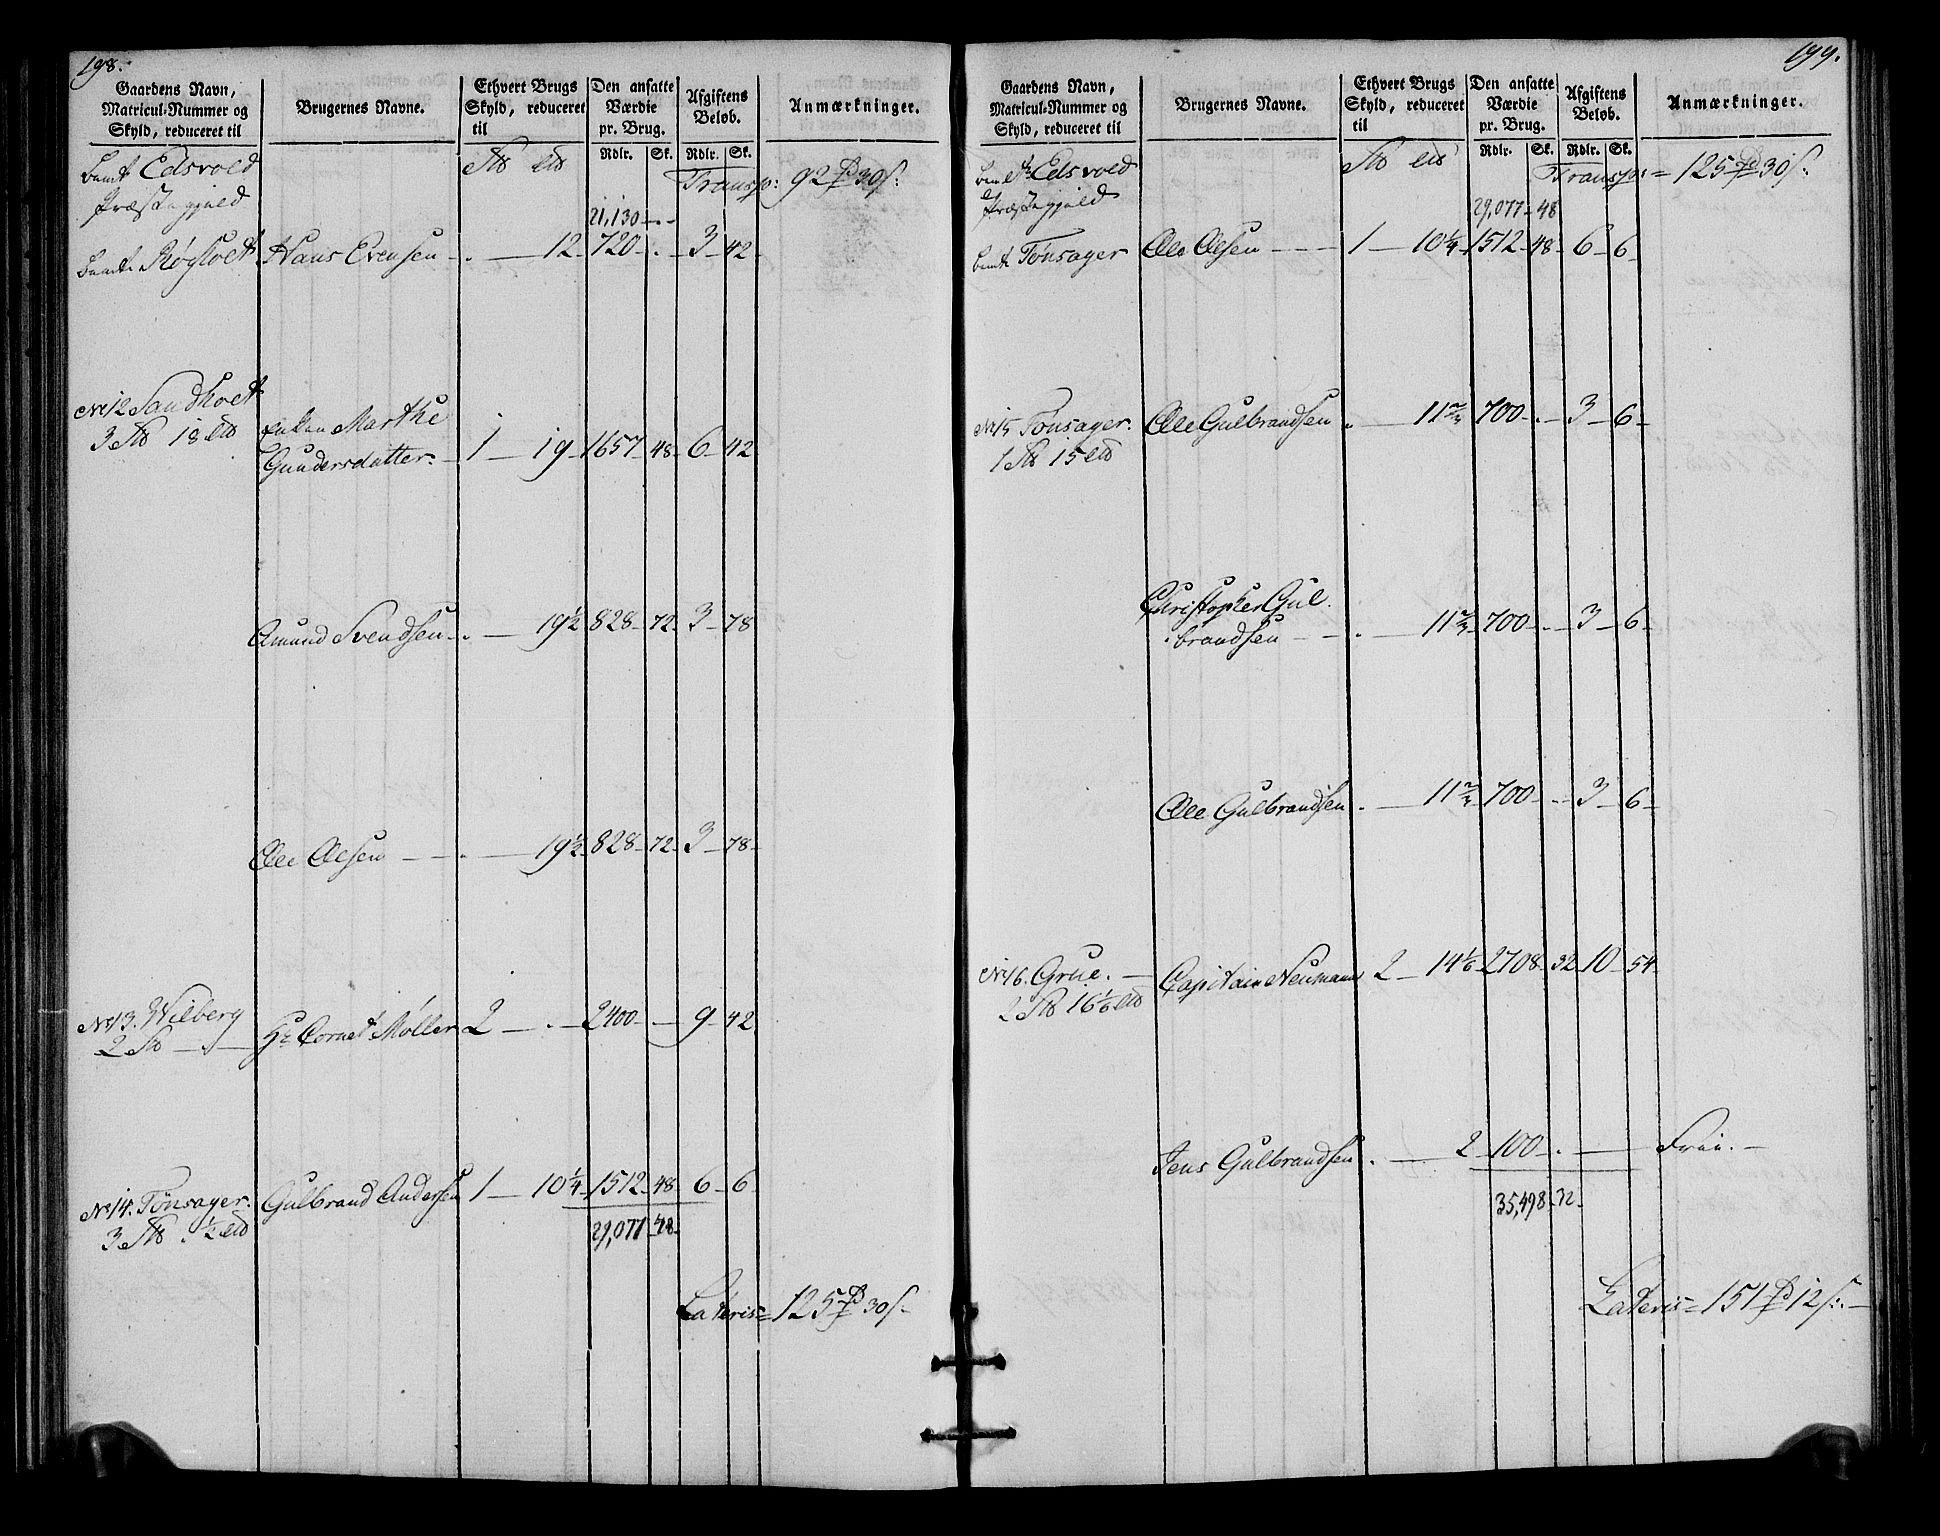 198.
Gaardens Navn,
Matricul-Nummer og
Skyld, reduceret til
Brugernes Navne.
Ethvert Brugs
Skyld, reduceret
til
Den ansatte
Værdie
pr. Brug.
Afgiftens
Beløb.
Anmærkninger.
Rdlr. Sk. Rdlr. Sk.
Edsvold
Præstegjeld
Transp: 92 30
21,130 - . -
Hans Evensen - . - 12 - 720 - . - 3 - 42
No 12 Sandholt
3 18
Enken Marthe
Gundersdatter. - 1 - 19 - 1657 - 48 - 6 - 42
Amund Svendsen - . - 19½ 828 - 72 - 3 - 78
Ole Olsen - - . - 19½ 828 - 72 - 3 - 78 -
No 13. Wilberg
2
Hr Cornet Møller 2 - . - 2400 - . - 9 - 42
No 14. Tønsager.
3 ½
Gulbrand Andersen 1 - 10¼ - 1512 - 48 - 6 - 6 -
29,077 - 48 -
Lateris = 125 30
199.
Gaardens Navn,
Matricul-Nummer og
Skyld, reduceret til
Brugernes Navne.
Ethvert Brugs
Skyld, reduceret
til
Den ansatte
Værdie
pr. Brug.
Afgiftens
Beløb.
Anmærkninger.
Rdlr. Sk. Rdlr. Sk.
Edsvold
Præstegjeld
Transp: = 125 30
29,077 - 48
Tønsager Ole Olsen - - - 1 - 10¼ - 1512 - 48 - 6 - 6 -
No 15 Tønsager.
1 15
Ole Gulbrandsen . - 11⅔ 700 - . - 3 - 6 -
Christopher Gul-
brandsen - - . - 11⅔ 700 - . - 3 - 6 -
Ole Gulbrandsen . - 11⅔ 700 - . - 3 - 6 -
No 16. Grue. -
2 16⅙
Capitain Neumann 2 - 14⅙ 2708 - 32 - 10 - 54 -
Jens Gulbrandsen . - 2 - 100 - . - Frie. -
35,498 - 32 -
Lateris = 151 12